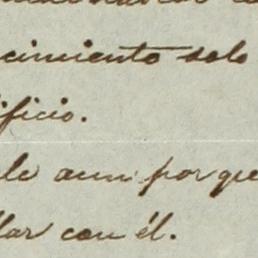 cimiento solo
ificio.
le aun porque
lar con él.